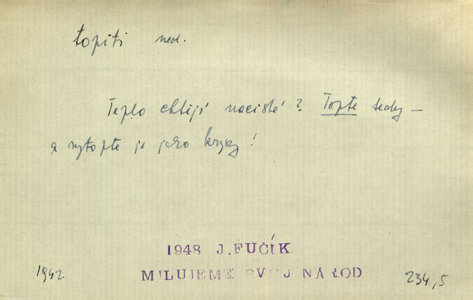 topiti ned.
Teplo chtějí nacisté? Topte tedy –
a vytopte je jako krysy!
1948 J. FUČÍK
MILUJEME SVŮJ NÁROD
1942
234,5